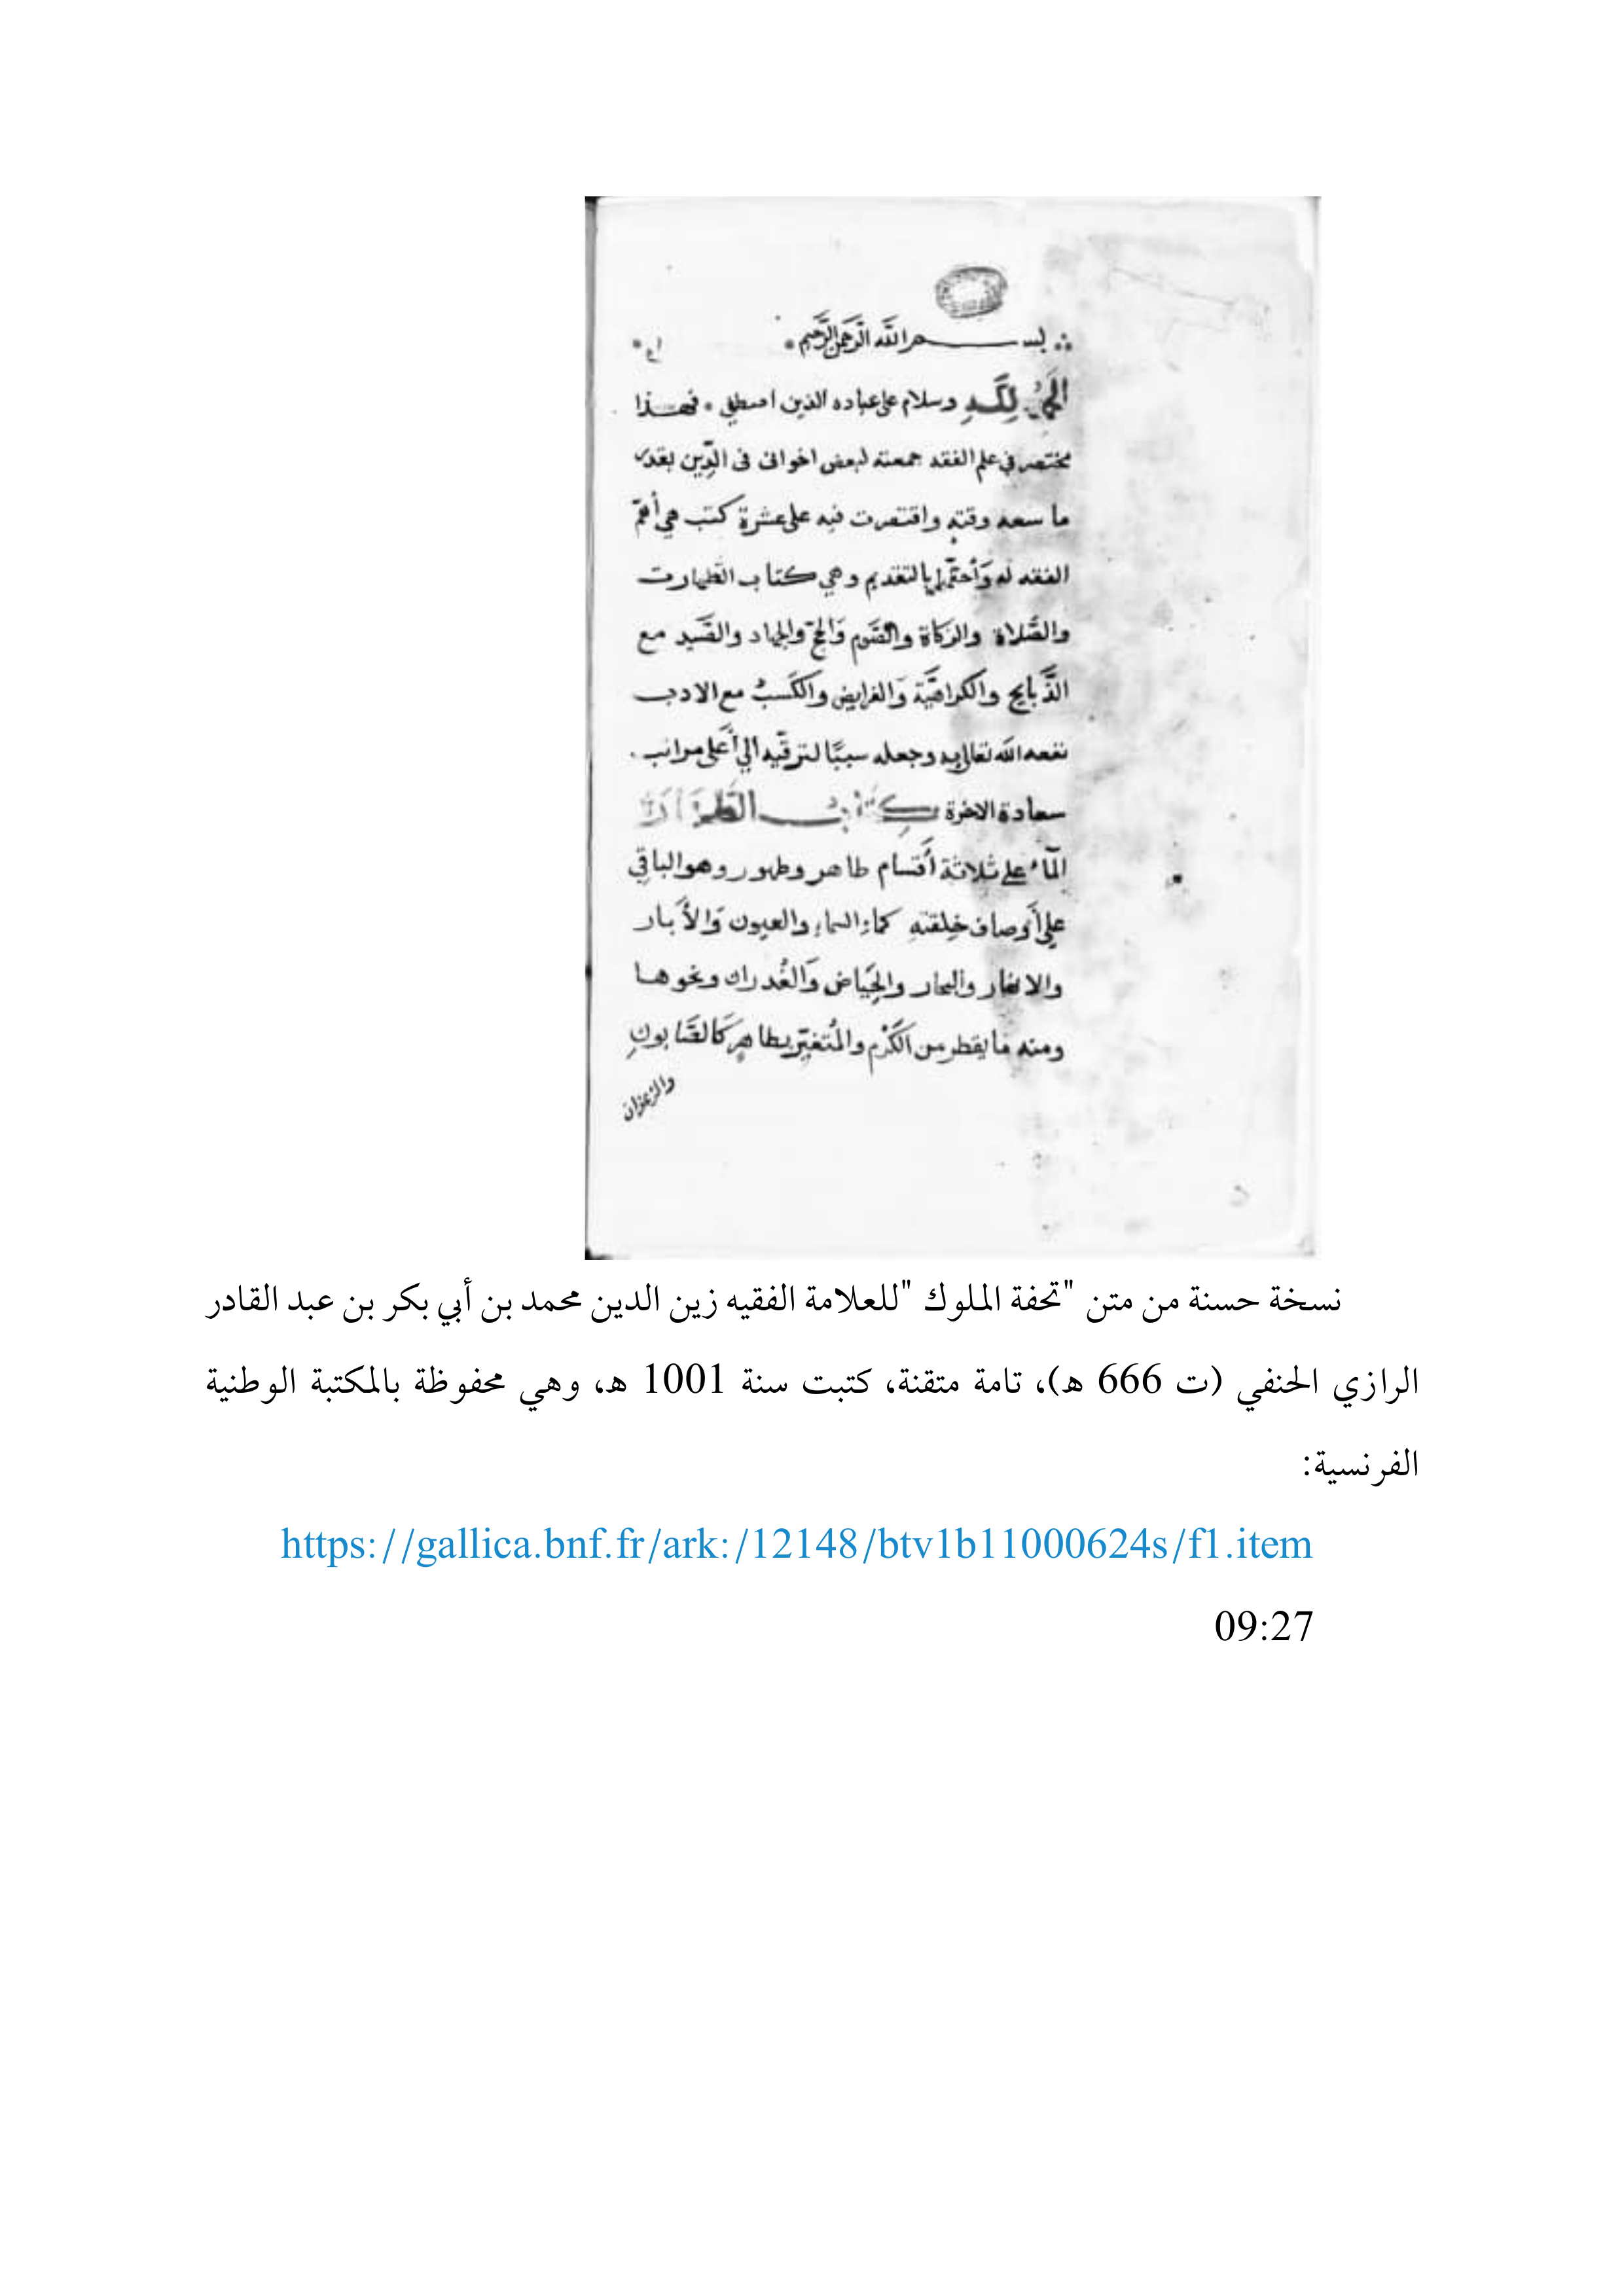 بسم الله الرحمن الرحيم
الحمد لله وسلام على عباده الذين اصطفى فهذا
مختصر في علم الفقه جمعته لبعض اخواني في الدِّين بقدر
ما سعه وقته واقتصرت فيه على عشرة كتب هي أهمّ
الفقه له وَأحقّها بالتقديم وهي كتاب الطهارت
والصَّلاة والزكاة والصَّوم وَالحجّ والجهاد والصَّيد مع
الذَّبايح والكراهيَّة وَالفرايض والكَسبُ مع الادب
نفعه الله تعالى به وجعله سببًا لترقّيه الي أَعلى مراتب
سعادة الاخرة كتاب الطهارة
المآء على ثلاثة أَقسام طاهر وطهور وهو الباقي
علي أَوصاف خِلقتهِ كماءِ السماءِ والعيون وَالأَبار
والانهار والبحار والحِيَاض وَالغُدران ونحوها
ومنه ما يقطر من الكَرْم والمُتغيّر بطاهرٍ كَالصَّابونِ
والزعفران
نسخة حسنة من متن "تحفة الملوك "للعلامة الفقيه زين الدين محمد بن أبي بكر بن عبد القادر
الرازي الحنفي (ت 666 هـ)، تامة متقنة، كتبت سنة 1001 هـ، وهي محفوظة بالمكتبة الوطنية
الفرنسية:
https://gallica.bnf.fr/ark:/12148/btv1b11000624s/f1.item
09:27